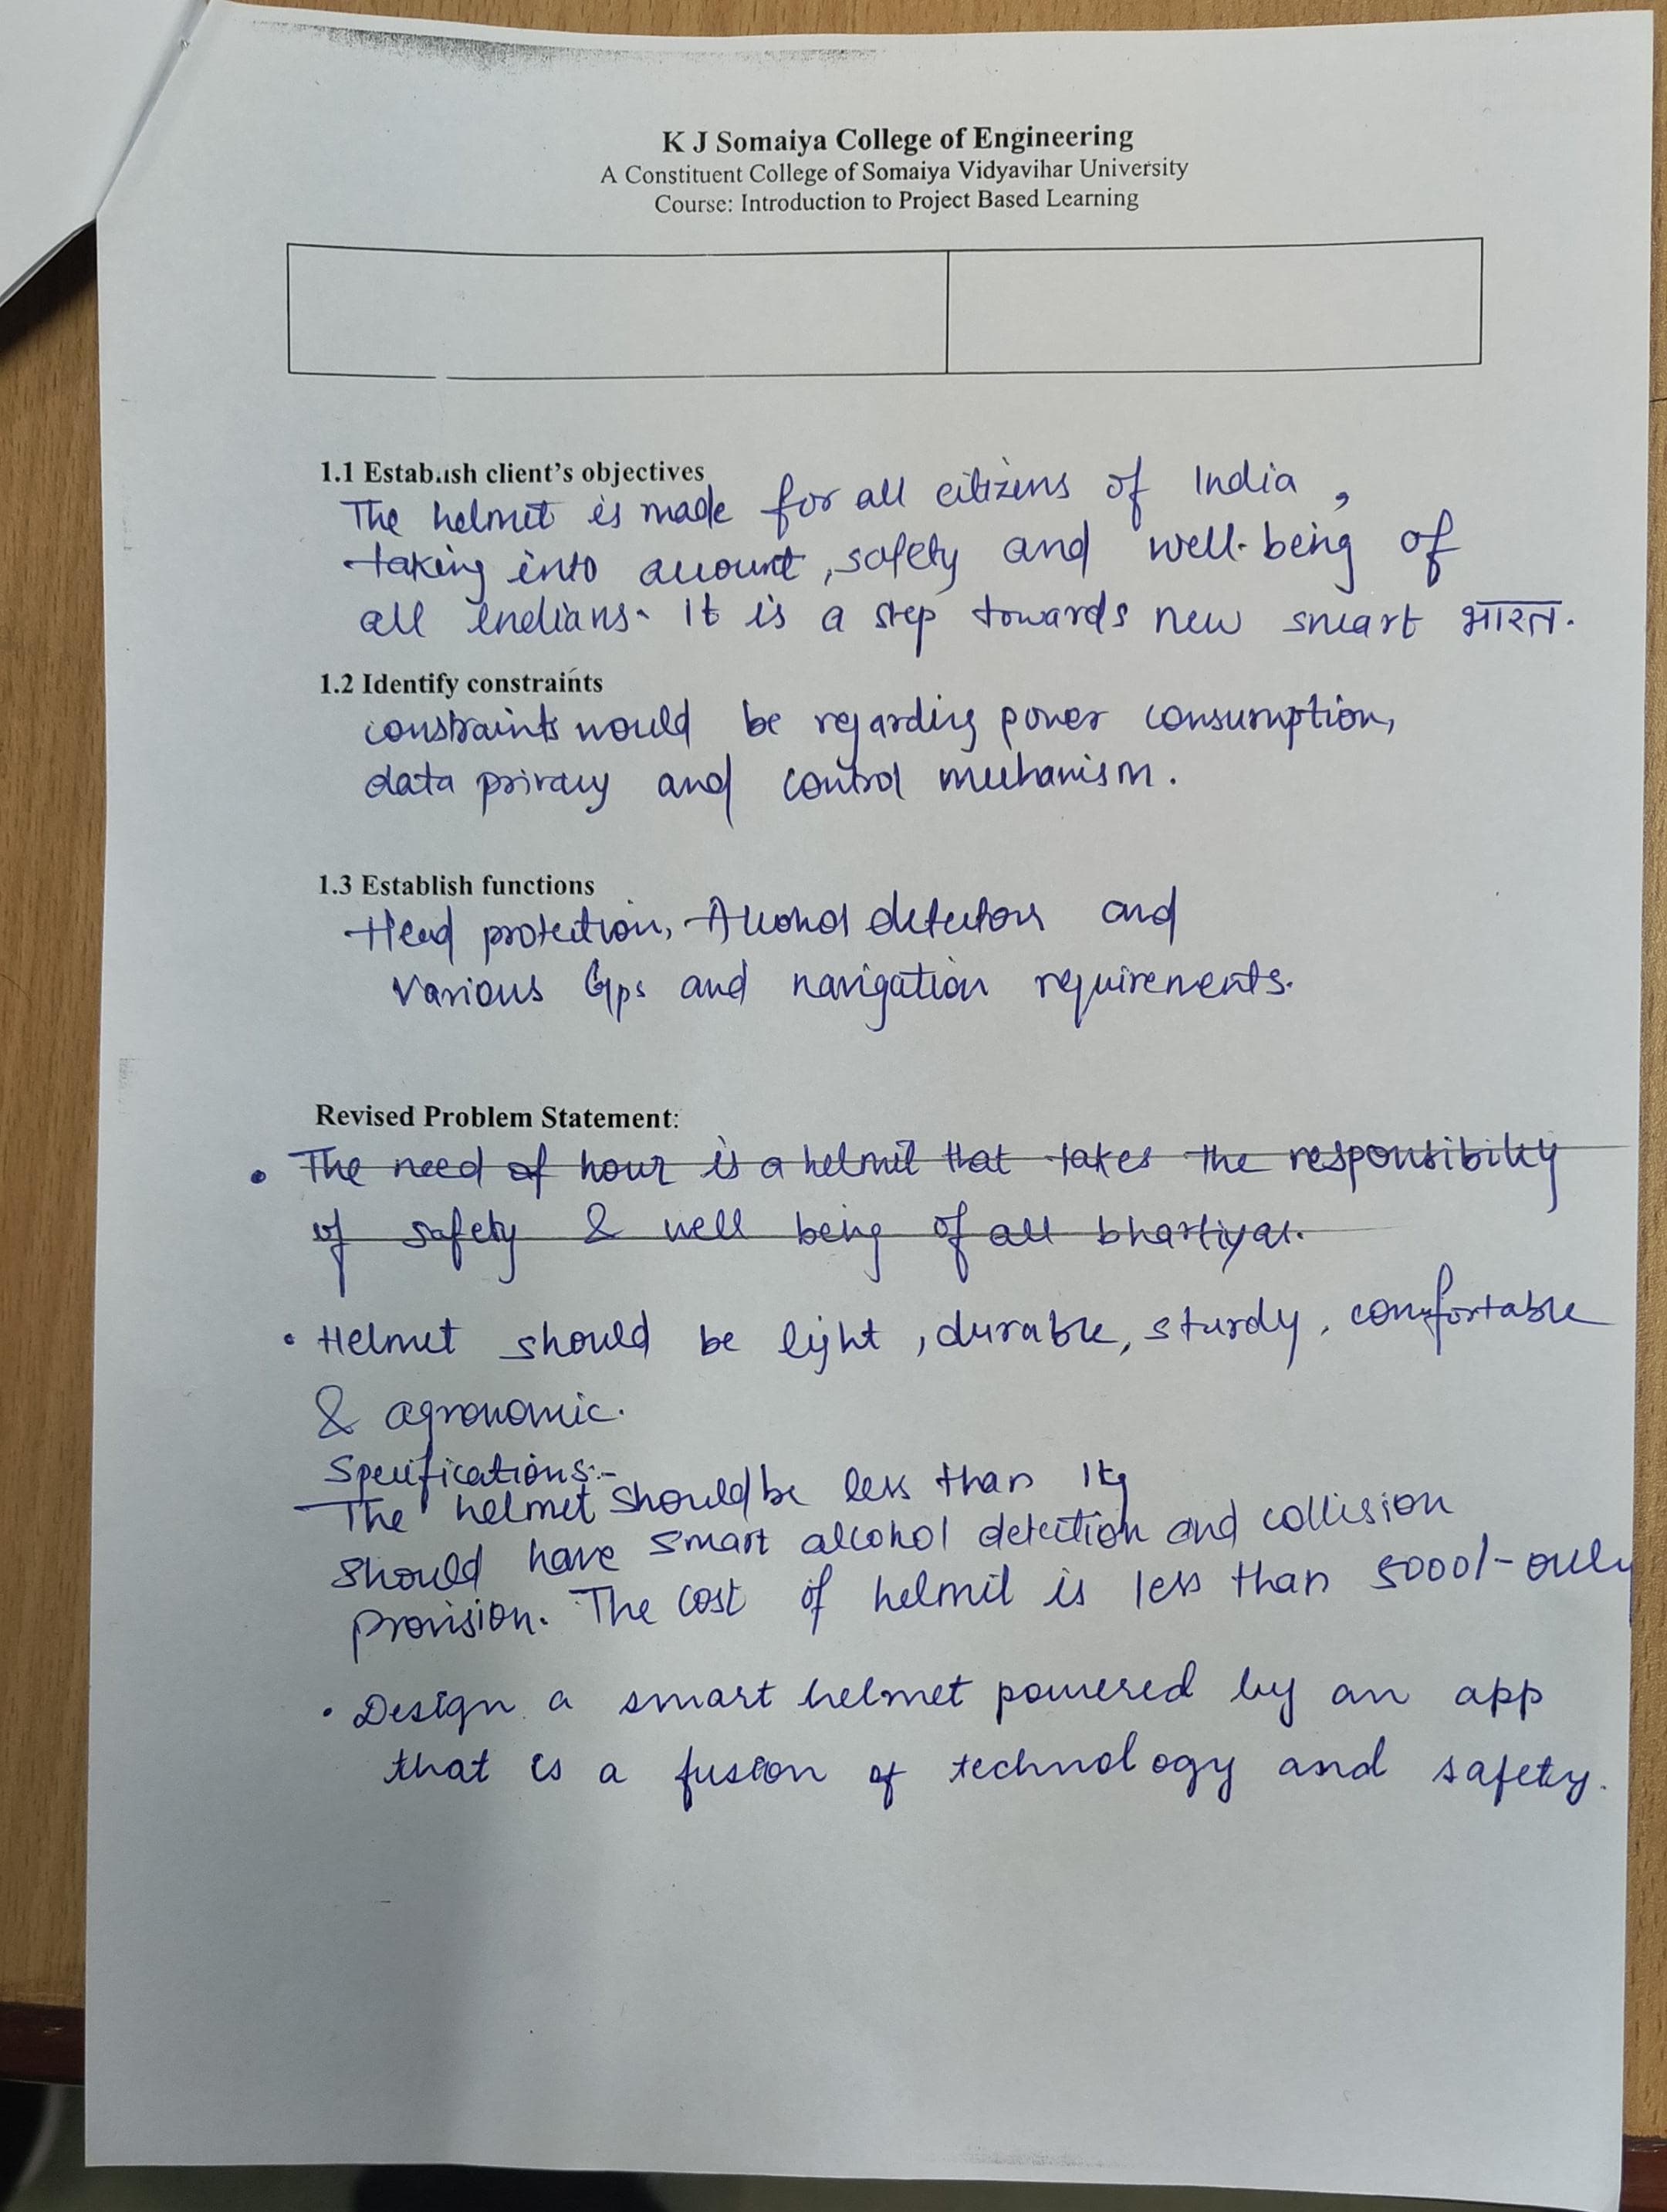 K J Somaiya College of Engineering
A Constituent College of Somaiya Vidyavihar University
Course: Introduction to Project Based Learning
1.1 Establish client's objectives
The helmet is made for all citizens of India,
taking into account, safety and well-being of
all Indians. It is a step towards new smart भारत.
1.2 Identify constraints
constraints would be regarding power consumption,
data privacy and control mechanism.
1.3 Establish functions
Head protection, Alcohol detectors and
various Gps and navigation requirements.
Revised Problem Statement:
• The need of hour is a helmet that takes the responsibility
of safety & well being of all bhartiyas.
• Helmet should be light, durable, sturdy, comfortable
& agronomic.
Specifications:-
The helmet should be less than 1kg
should have smart alcohol detection and collision
provision. The cost of helmet is less than 5000/- only
• Design a smart helmet powered by an app
that is a fusion of technology and safety.